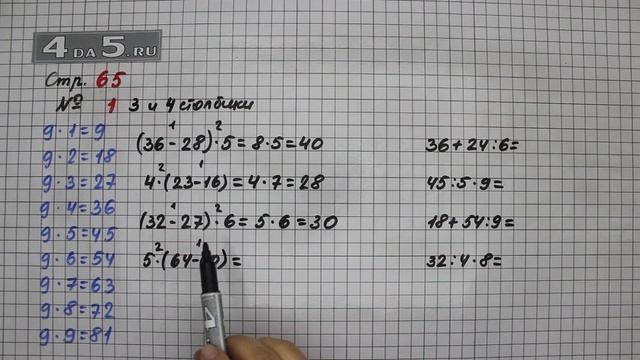 4 DA 5.RU
Стр. 65
№ 1 3 и 4 столбики
9·1=9
9·2=18
9·3=27
9·4=36
9·5=45
9·6=54
9·7=63
9·8=72
9·9=81
1 2
(36-28)·5=8·5=40
2 1
4·(23-16)=4·7=28
1 2
(32-27)·6=5·6=30
2 1
5·(64-
0)=
36+24:6=
45:5·9=
18+54:9=
32:4·8=